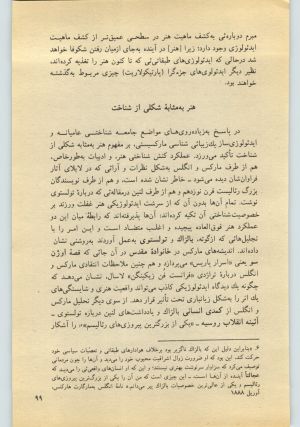 مبرم دوباره‌ئی به‌کشف ماهیت هنر در سطحی عمیق‌تر از کشف ماهیت
ایدئولوژی وجود دارد؛ زیرا [هنر] در آینده به‌جای ازمیان رفتن شکوفا خواهد
شد درحالی که ایدئولوژی‌های طبقاتی‌ئی که تا کنون هنر را تغذیه کرده‌اند،
نظیر دیگر ایدئولوی‌های جزءگرا (پارتیکولاریت) چیزی مربوط به‌گذشته
خواهند بود.
هنر به‌مثابهٔ شکلی از شناخت
در پاسخ به‌زیاده‌روی‌های مواضع جامعه شناختی عامیانه و
ایدئولوژی‌ساز یك زیبائی شناسی مارکسیستی، بر مفهوم هنر به‌مثابه شکلی از
شناخت تأکید می‌ورزد. عملکرد کنش شناختی هنر، و ادبیات به‌طورخاص،
هم از طرف مارکس و انگلس به‌شکل نظرات و آرائی که در لابلای آثار
فراوان‌شان دیده می‌شود - خاطر نشان شده است، و هم از طرف نویسندگان
بزرگ رئالیست قرن نوزدهم و هم از طرف لنین درمقاله‌ئی که دربارهٔ تولستوی
نوشت. تمام آن‌ها بدون آن که از سرشت ایدئولوژیکی هنر غفلت ورزند بر
خصوصیت شناختی آن تکیه کرده‌اند، آن‌ها پذیرفته‌اند که رابطهٔ میان این دو
عملکرد هنر فوق‌العاده پیچیده و اغلب متضاد است و این امر را با
تحلیل‌هائی که ازگوته، بالزاك و تولستوی به‌عمل آوردند به‌روشنی نشان
داده‌اند. اندیشه‌های مارکس در خانوادهٔ مقدس در آن جائی که قصهٔ اوژن
سو یعنی «اسرار پاریس» می‌پردازد و هم چنین ملاحظات انتقادی مارکس و
انگلس دربارهٔ تراژدی «فرانست فُن زیکینگن» لاسال، نشان می‌دهد که
چگونه یك دیدگاه ایدئولوژیکی کاذب می‌تواند واقعیت هنری و شایستگی‌های
یك اثر را به‌شکل زیانباری تحت تأثیر قرار دهد. از سوی دیگر تحلیل مارکس
و انگلس از کمدی انسانی بالزاك و یادداشت‌های لنین درباره تولستوی -
آئینه انقلاب روسیه - «یکی از بزرگترین پیروزی‌های رئالیسم»، را آشکار
۶. «بنابراین دلیل این که بالزاك ناگزیر بود برخلاف هوادارهای طبقاتی و تعصبات سیاسی خود
حرکت کند، این بود که او ضرورت زوال اشرافیت محبوب خود را می‌دید و آن‌ها را چون مردمانی
توصیف می‌کرد که سزاوار سرنوشت بهتری نیستند؛ و این که او انسان‌های واقعی‌ئی را می‌دید که
عجالتاً آینده از آن‌هاست... این چیزی است که من آن را یکی از بزرگترین پیروزی‌های
رئالیسم و یکی از عالی‌ترین خصوصیات بالزاك پیر می‌دانم.» نامهٔ انگلس به‌مارگارت هارکنس،
آوریل ۱۸۸۸
۹۹